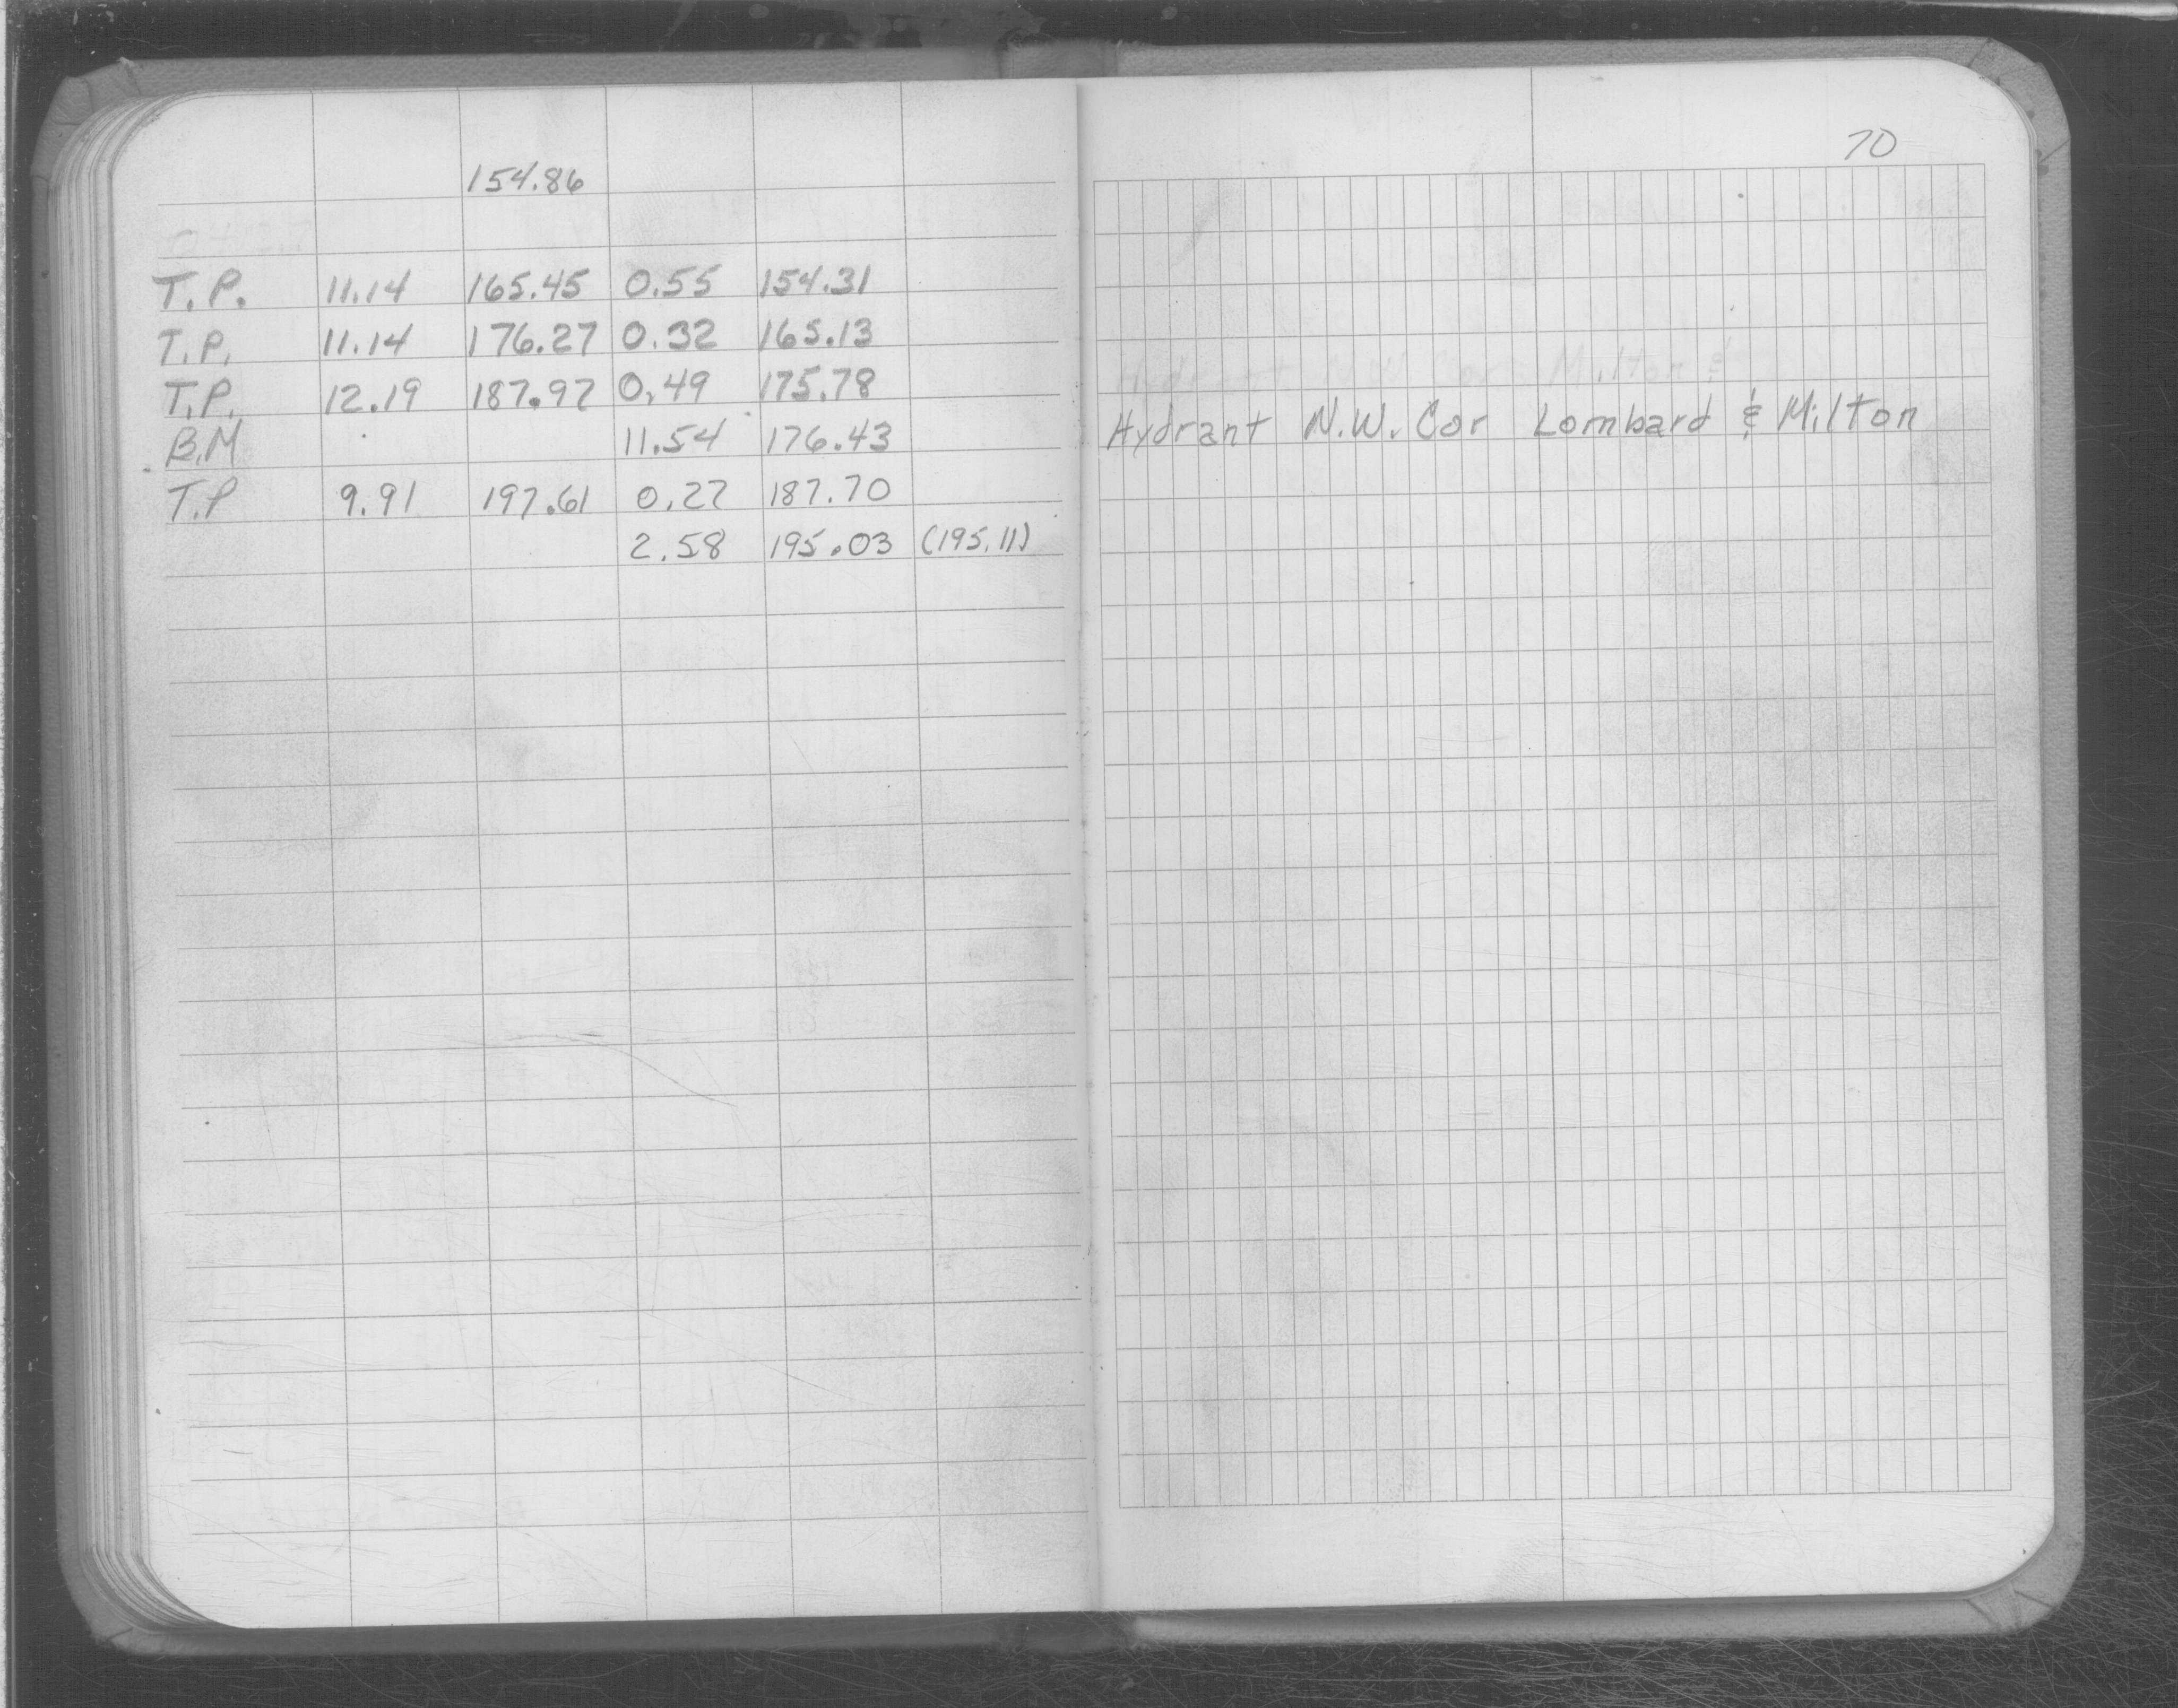 70
154.86
T.P. 11.14 165.45 0.55 154.31
T.P. 11.14 176.27 0.32 165.13
T.P. 12.19 187.97 0.49 175.78
B.M 11.54 176.43 Hydrant N.W. Cor Lombard & Milton
T.P 9.91 197.61 0.27 187.70
2.58 195.03 (195.11)